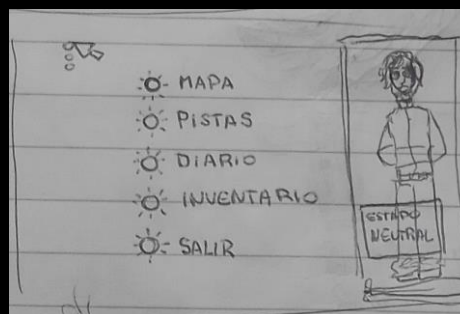 MAPA
PISTAS
DIARIO
INVENTARIO
SALIR
ESTADO
NEUTRAL